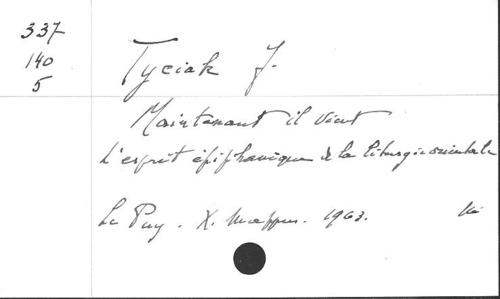 337
140
5
Tyciak J.
Maintenant il vient
L'esprit épiphanique de la liturgie orientale
Le Puy. X. Mappus. 1963.